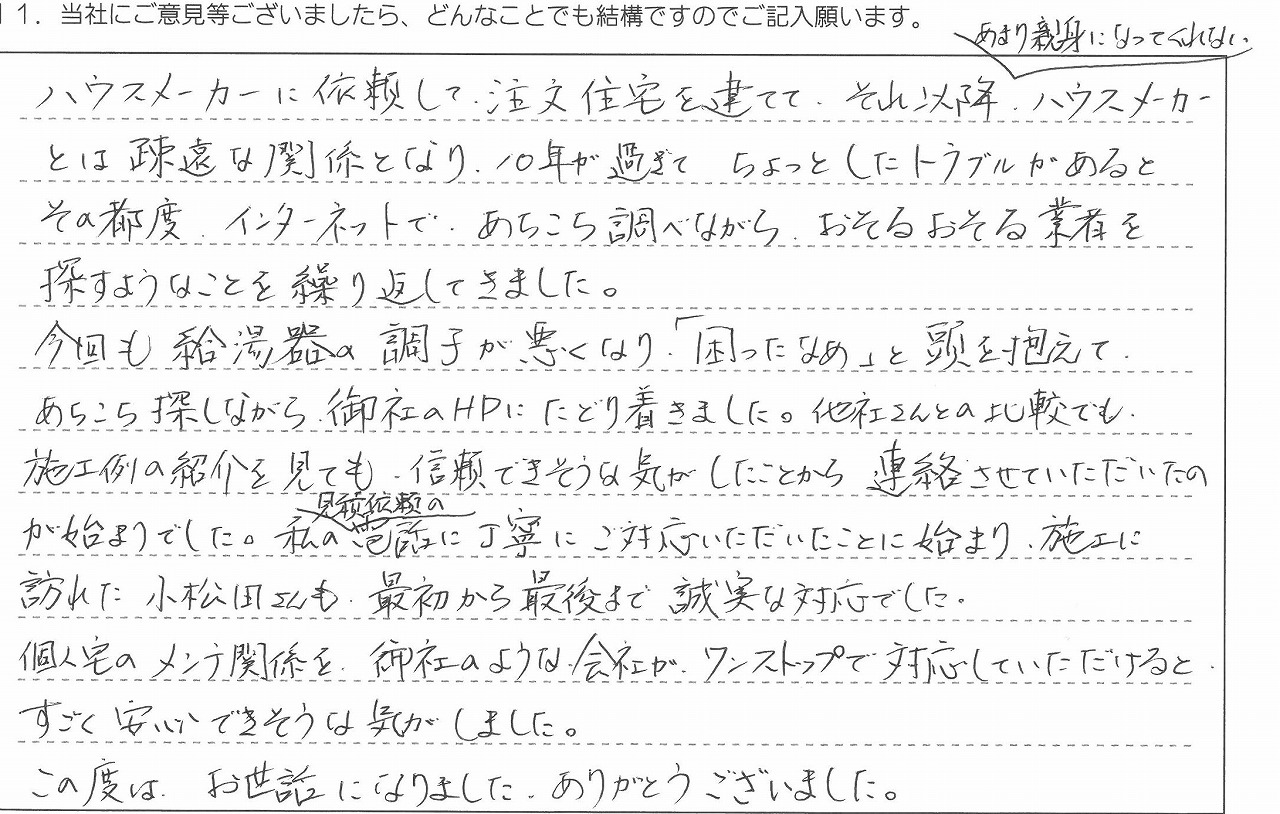 11．当社にご意見等ございましたら、どんなことでも結構ですのでご記入願います。
あまり親身になってくれない
ハウスメーカーに依頼して、注文住宅を建てて、それ以降、ハウスメーカー
とは疎遠な関係となり、10年が過ぎて ちょっとしたトラブルがあると
その都度、インターネットで、あちこち調べながら、おそるおそる業者を
探すようなことを繰り返してきました。
今回も給湯器の調子が悪くなり、「困ったなぁ」と頭を抱えて、
あちこち探しながら、御社のHPにたどり着きました。他社さんとの比較でも、
施工例の紹介を見ても、信頼できそうな気がしたことから連絡させていただいたの
見積依頼の
が始まりでした。私の電話に丁寧にご対応いただいたことに始まり、施工に
訪れた小松田さんも、最初から最後まで誠実な対応でした。
個人宅のメンテ関係を、御社のような会社が、ワンストップで対応していただけると、
すごく安心できそうな気がしました。
この度は、お世話になりました、ありがとうございました。